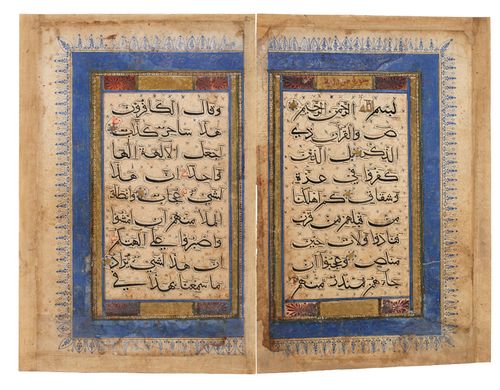 بسم الله الرحمن الرحيم
ص والقرآن ذي
الذكر بل الذين
كفروا في عزة
وشقاق كم اهلكنا
من قبلهم من قرن
فنادوا ولات حين
مناص وعجبوا ان
جاءهم منذر منهم
وقال الكافرون
هذا ساحر كذاب
اجعل الآلهة الها
واحدا ان هذا
لشيء عجاب وانطلق
الملأ منهم ان امشوا
واصبروا على آلهتكم
ان هذا لشيء يراد
ما سمعنا بهذا في